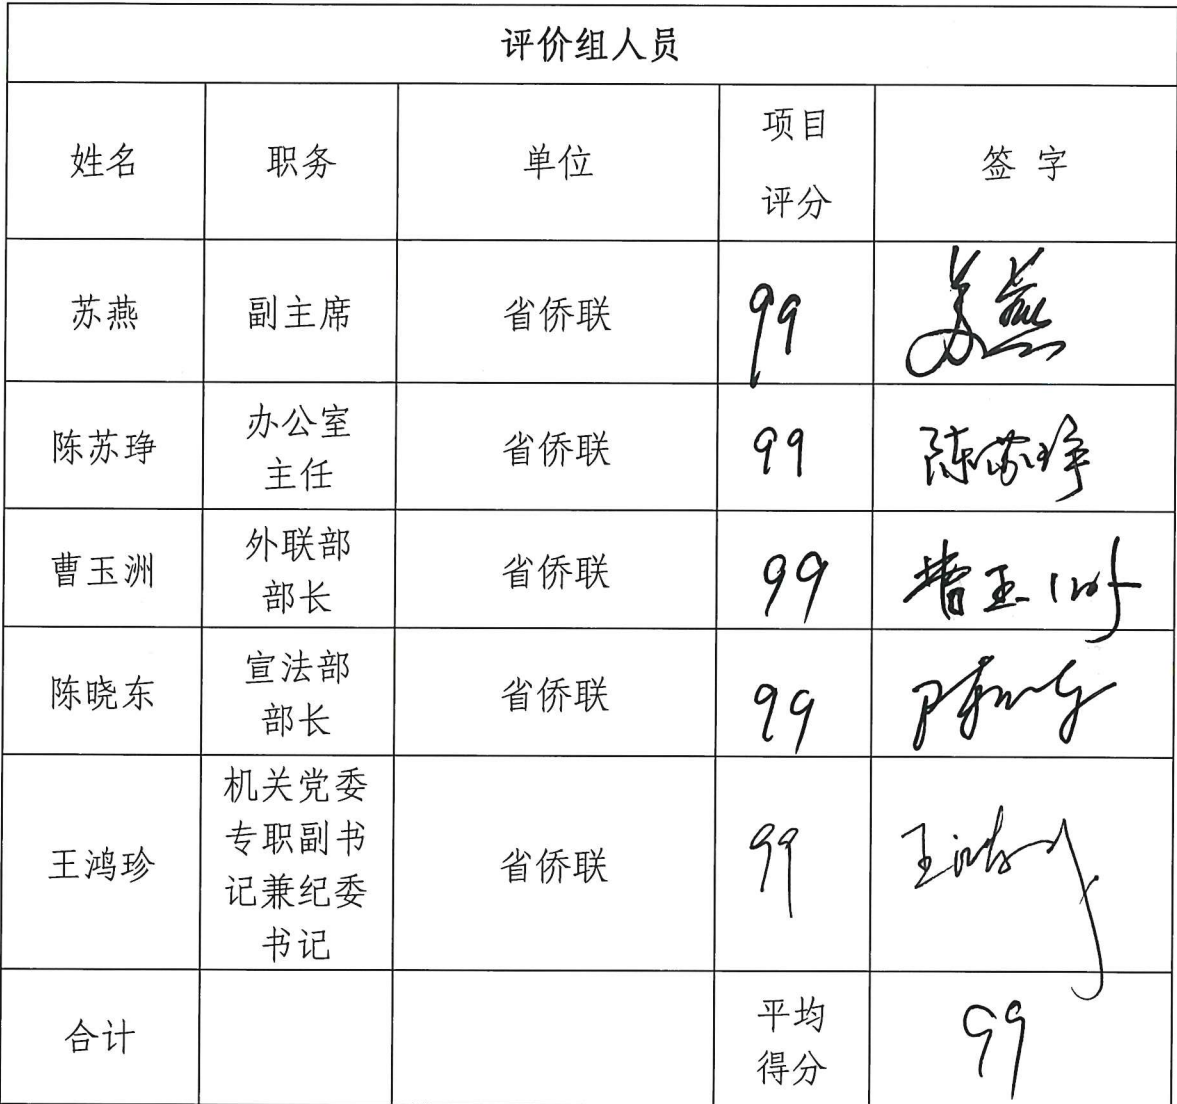 评价组人员
姓名 职务 单位 项目评分 签 字
苏燕 副主席 省侨联 99 苏燕
陈苏琤 办公室主任 省侨联 99 陈苏琤
曹玉洲 外联部部长 省侨联 99 曹玉洲
陈晓东 宣法部部长 省侨联 99 陈晓东
王鸿珍 机关党委专职副书记兼纪委书记 省侨联 99 王鸿珍
合计 平均得分 99